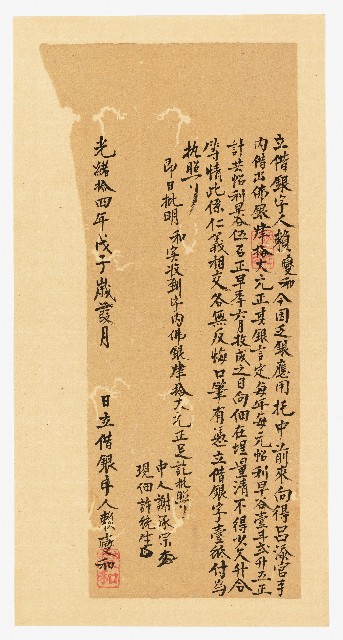 立借銀字人賴變和今因乏銀應用托中前來向得呂渝官手
內借出佛銀肆拾大元正其銀言定每年每元帖利早谷壹斗弍升五正
計共帖利早谷伍石正早季六月收成之日向佃在埕量清不得少欠升合
等情此係仁義相交各無反悔口筆有憑立借銀字壹紙付為
执照行
即日批明和实收到字內佛銀肆拾大元正足訖批照行
中人謝承宗
現佃許統生
光緒拾四年戊子歲 月 日立借銀字人賴變和